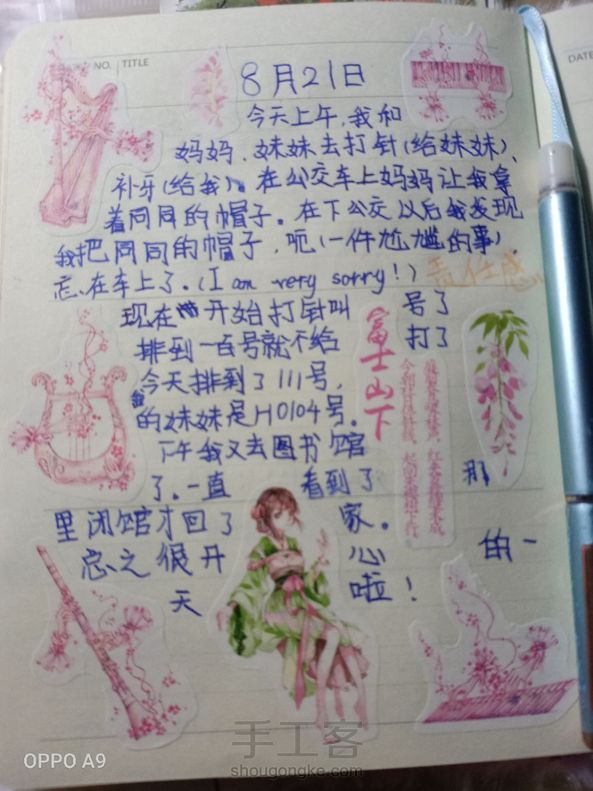 NO. | TITLE
DATE
8月21日
今天上午,我和
妈妈、妹妹去打针(给妹妹)、
补牙(给我)。在公交车上妈妈让我拿
着同同的帽子。在下公交以后我发现
我把同同的帽子,呃(一件尬尴的事)
忘在车上了。(I am very sorry!)责任感
现在开始打针叫号了
排到一百号就不给打了
今天排到了111号,
我的妹妹是H0104号。
下午我又去图书馆
了。一直看到了那
里闭馆才回了家。
总之很开心的一
天啦!
富士山下
手工客
shougongke.com
OPPO A9